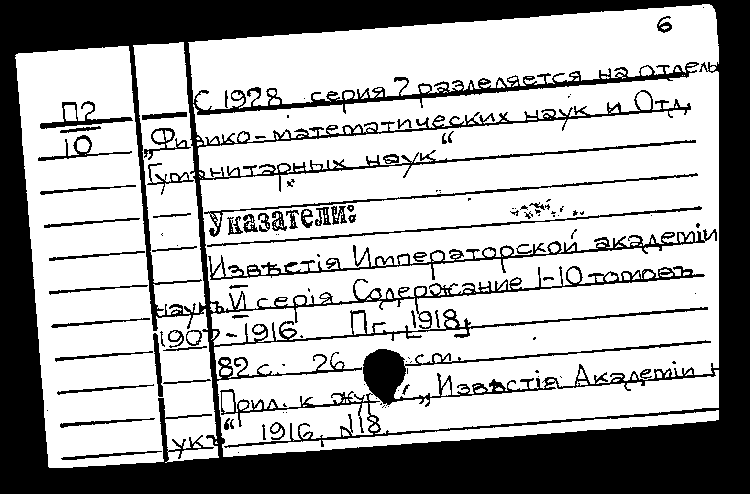 6
С 1928 серия 7 разделяется на отделы
П7
10
„Физико-математических наук и Отд.
Гуманитарных наук“
Указатели:
Извѣстія Императорской академіи
наукъ. VI серія. Содержание 1-10 томовъ
1907-1916. Пг., [1918]
82 с. 26 см.
Прил. к жур. „Извѣстія Академіи н
укъ“ 1916, №18.